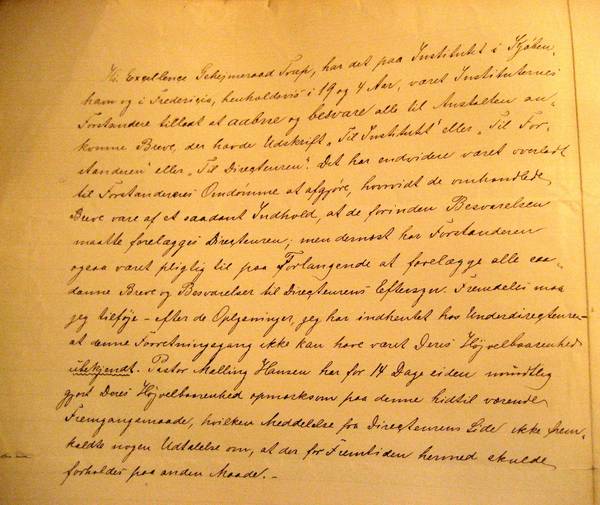 Hs. Excellence Gehejmeraad Trap, har det paa Institutet i Kjøben-
havn og i Fredericia, henholdsvis i 19 og 4 Aar, været Instituternes
Forstandere tilladt at aabne og besvare alle til Anstalten an-
komne Breve, der havde Udskrift „Til Institutet" eller „Til For-
standeren" eller „Til Directeuren". Det har endvidere været overladt
til Forstanderens Omdømme at afgjøre, hvorvidt de omhandlede
Breve vare af et saadant Indhold, at de forinden Besvarelsen
maatte forelægges Directeuren; men dernæst har Forstanderen
ogsaa været pligtig til paa Forlangende at forelægge alle saa-
danne Breve og Besvarelser til Directeurens Eftersyn. Fremdeles maa
jeg tilføje - efter de Oplysninger, jeg har indhentet hos Underdirecteuren -
at denne Forretningsgang ikke kan have været Deres Højvelbaarenhed
ubekjendt. Pastor Malling Hansen har for 14 Dage siden mundtlig
gjort Deres Højvelbaarenhed opmærksom paa denne hidtil værende
Fremgangsmaade, hvilken Meddelelse fra Directeurens Side ikke frem-
kaldte nogen Udtalelse om, at der for Fremtiden hermed skulde
forholdes paa anden Maade. -